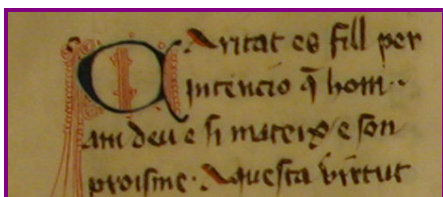 CAritat es fill per
intencio q̄ hom
am deu e si mateix e son
proisme. Aquesta virtut